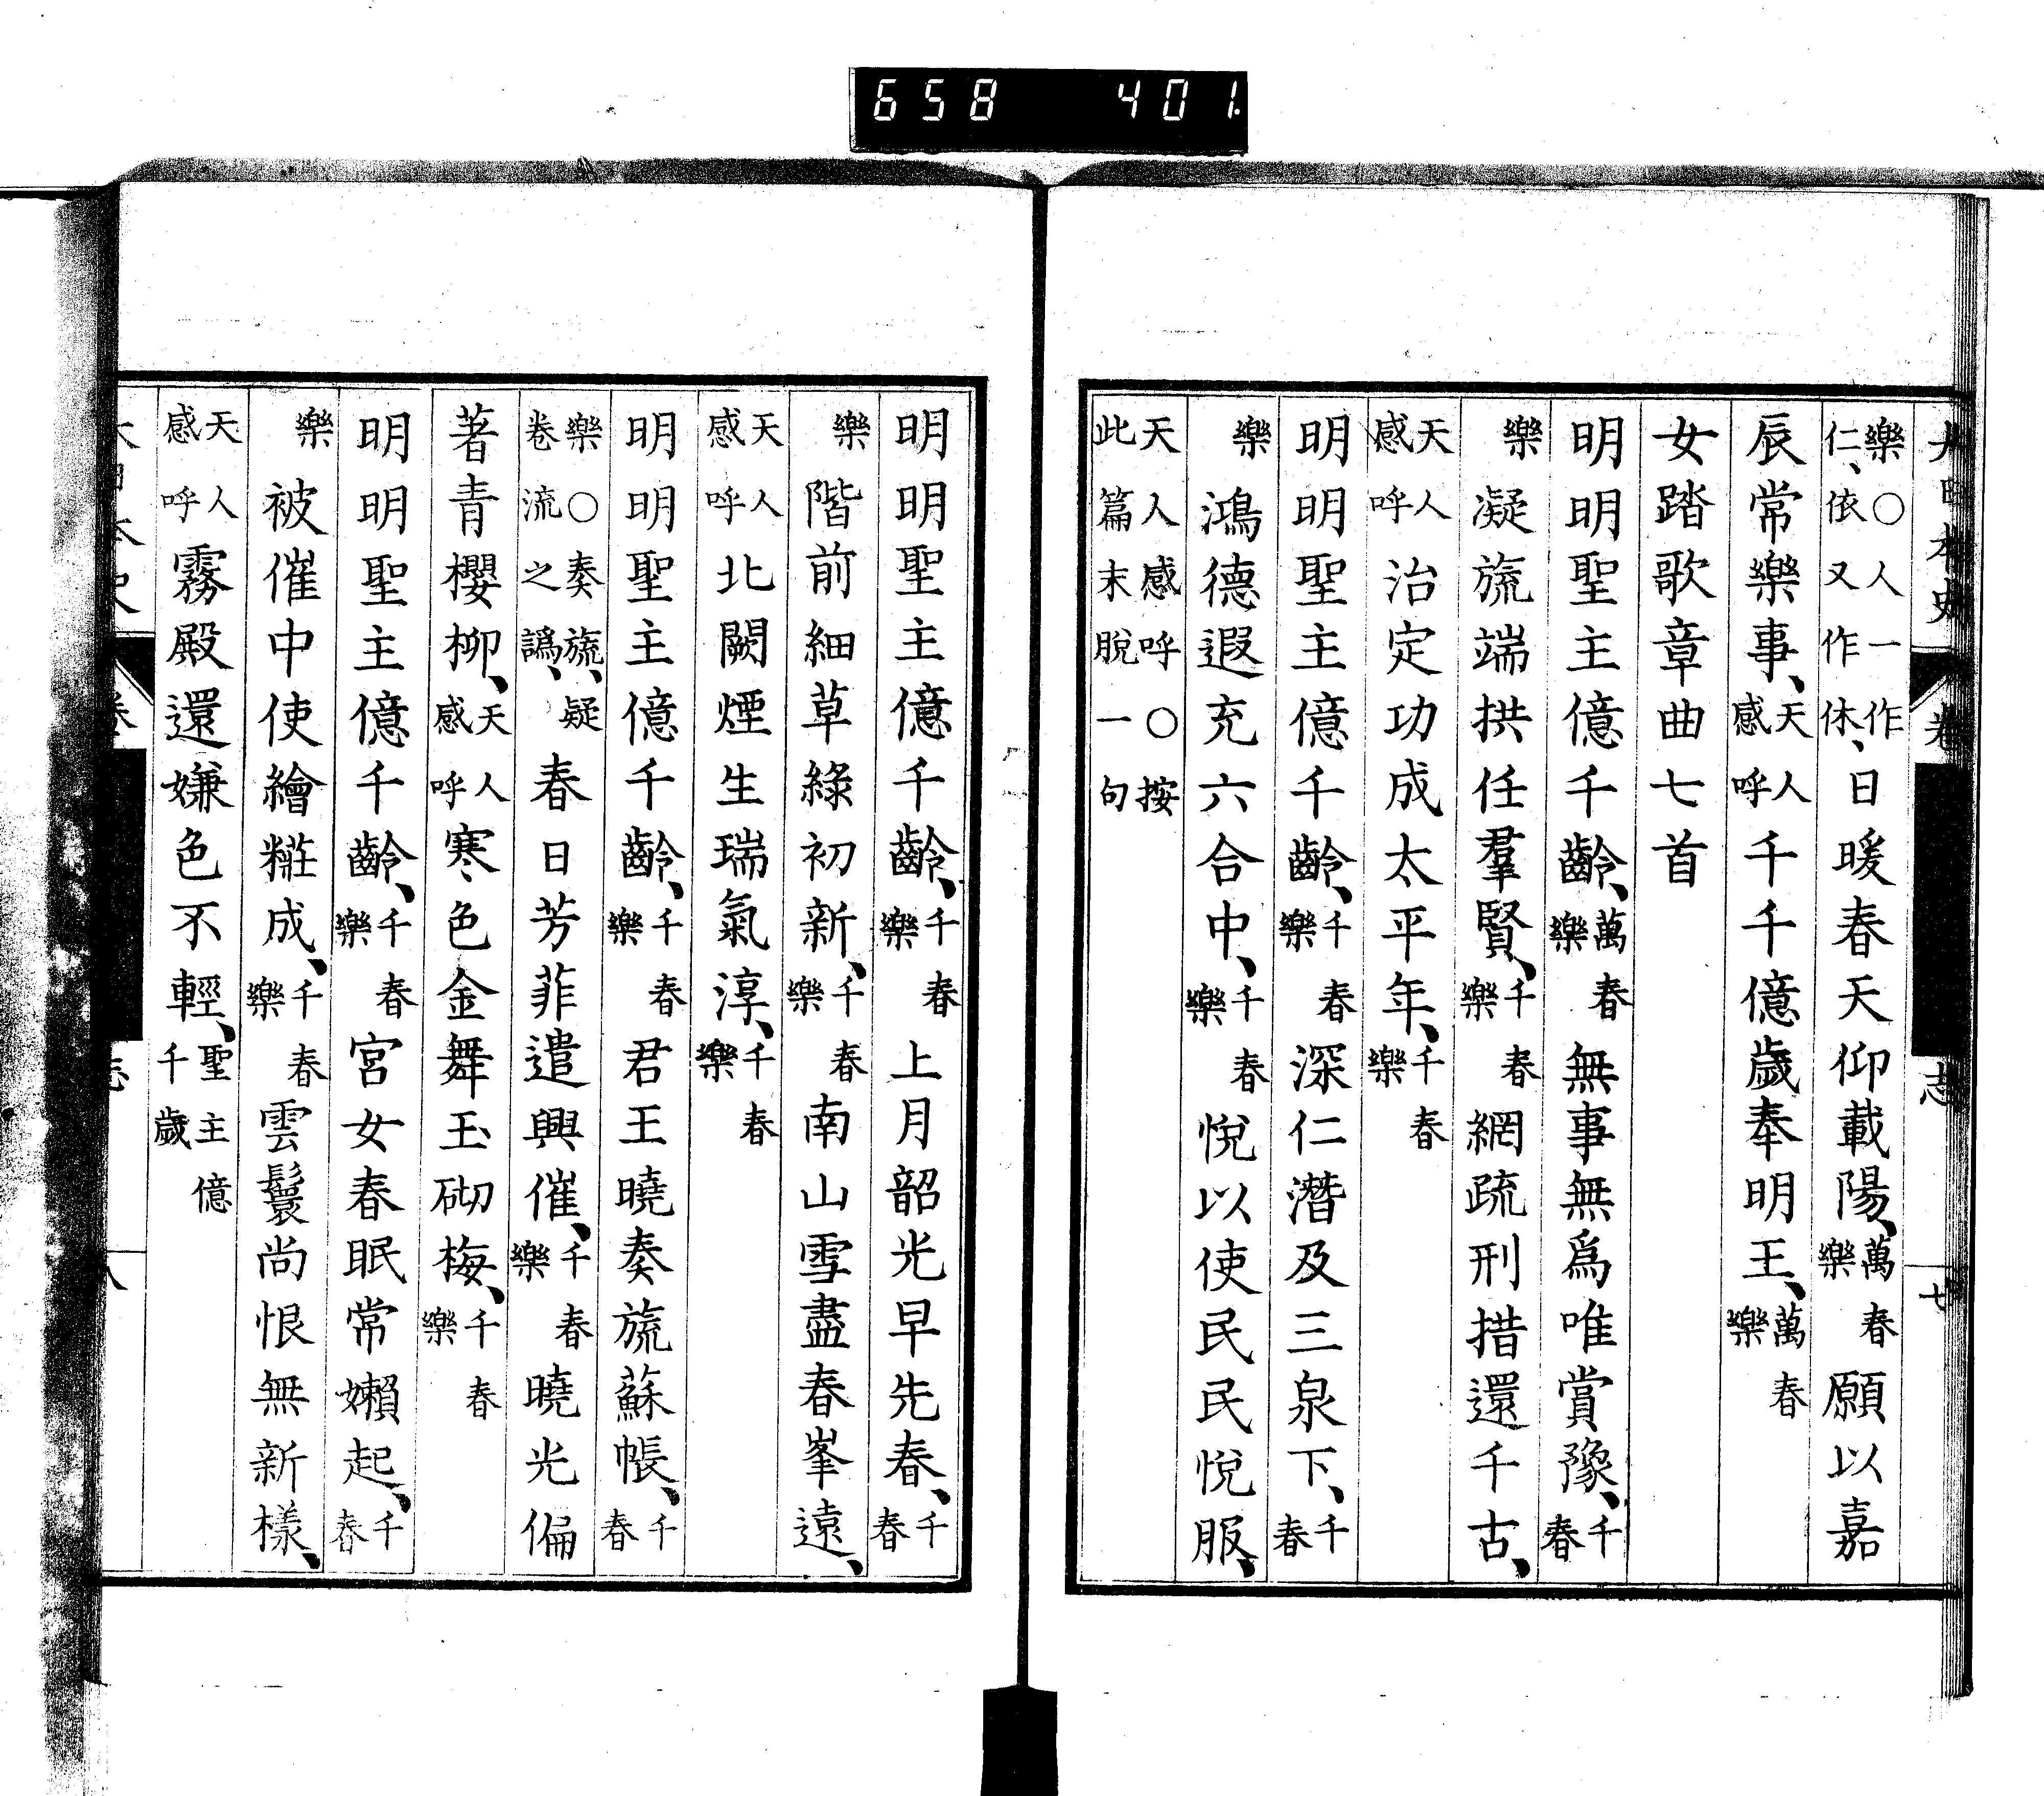 658 401
大日本史 卷 志 七
樂○人一作仁、依又作休、日暖春天仰載陽、萬春樂願以嘉
辰常樂事、天人感呼千千億歲奉明王、萬春樂
女踏歌章曲七首
明明聖主億千齡、萬春樂無事無爲唯賞豫、千春
樂凝旒端拱任羣賢、千春樂網疏刑措還千古、
天人感呼治定功成太平年、千春樂
明明聖主億千齡、千春樂深仁潛及三泉下、千春
樂鴻德遐充六合中、千春樂悅以使民民悅服、
天人感呼○按此篇末脫一句
明明聖主億千齡、千春樂上月韶光早先春、千春
樂階前細草綠初新、千春樂南山雪盡春峯遠、
天人感呼北闕煙生瑞氣淳、千春樂
明明聖主億千齡、千春樂君王曉奏旒蘇帳、千春
樂○奏旒、疑卷流之譌、春日芳菲遣興催、千春樂曉光偏
著青櫻柳、天人感呼寒色金舞玉砌梅、千春樂
明明聖主億千齡、千春樂宮女春眠常嬾起、千春
樂被催中使繪糚成、千春樂雲鬟尚恨無新樣、
天人感呼霧殿還嫌色不輕、聖主億千歲
大日本史 卷 志 八